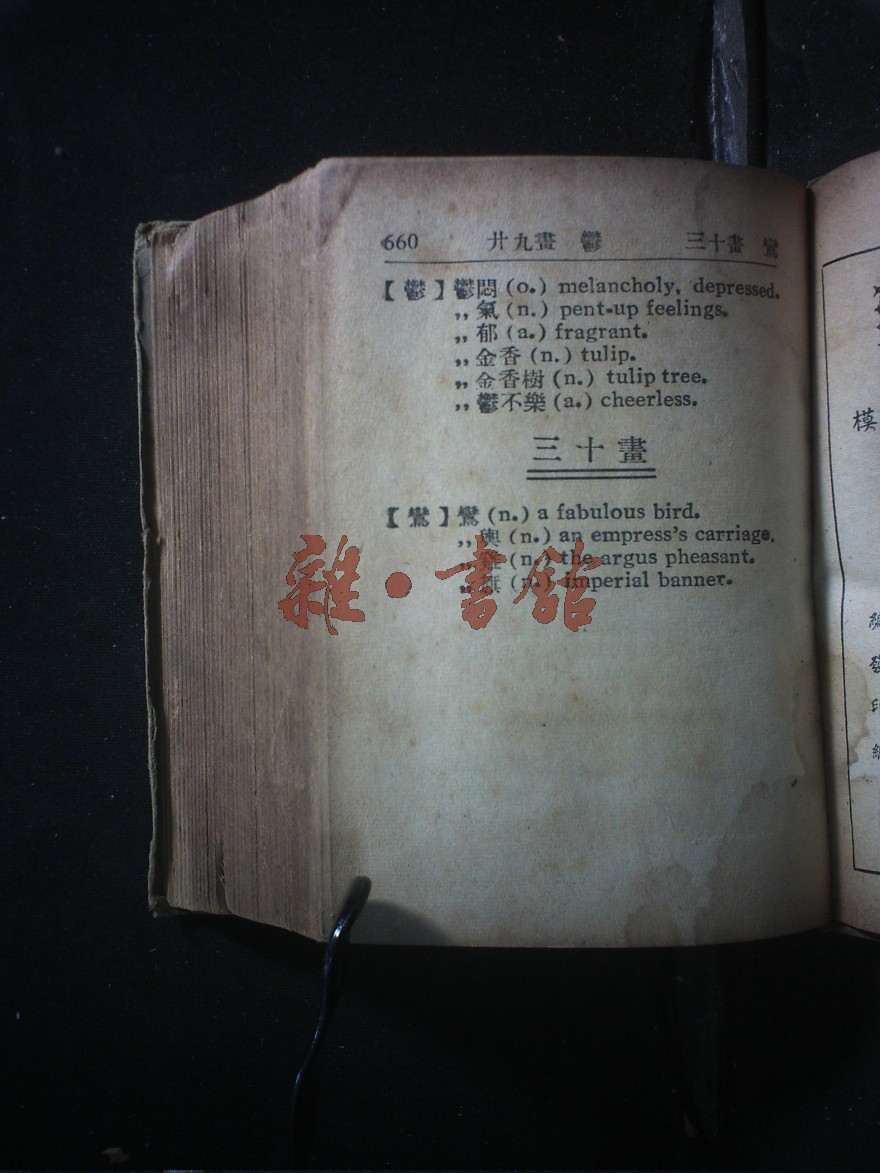 660 廿九畫 鬱 三十畫 鸞
【鬱】鬱悶 (o.) melancholy, depressed.
,, 氣 (n.) pent-up feelings.
,, 郁 (a.) fragrant.
,, 金香 (n.) tulip.
,, 金香樹 (n.) tulip tree.
,, 鬱不樂 (a.) cheerless.
三十畫
【鸞】鸞 (n.) a fabulous bird.
,, 輿 (n.) an empress's carriage.
,, (n.) the argus pheasant.
,, 旗 (n.) imperial banner.
雜·書館
模
編
發
印